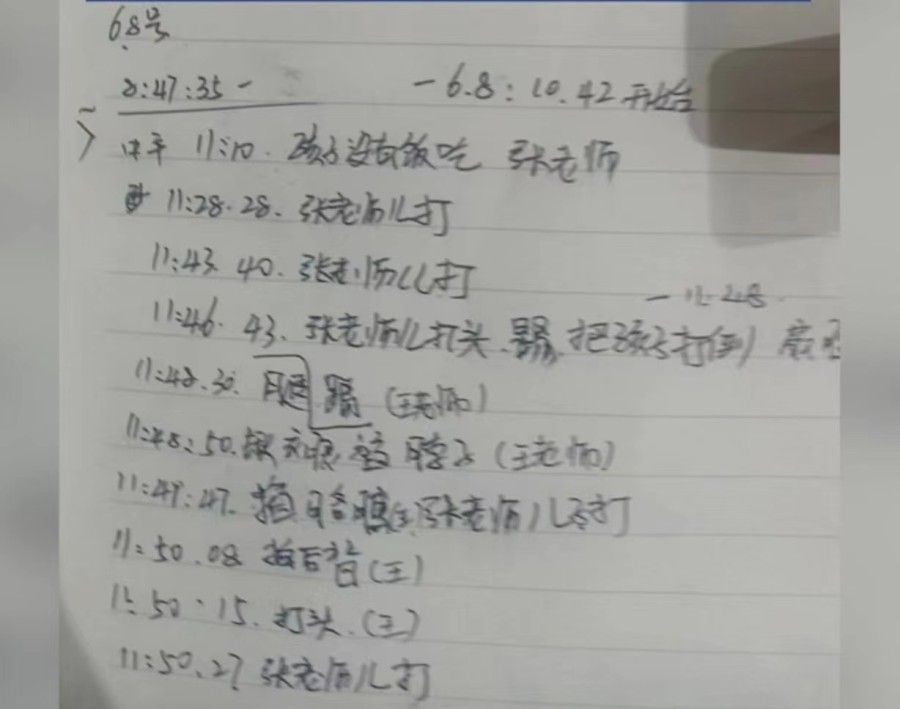 6.8号
8:47:35 - - 6.8: 10.42 开始
中午 11:10. 孩子没有饭吃 张老师
11:28.28. 张老师儿打
11:43 40. 张老师儿打
11:46. 43. 张老师儿打头 踢 把孩子打倒
11:48.30. 腿 踢 (王老师)
11:48:50. 脖子 (王老师)
11:49:47. 张老师儿打
11:50.08 拍后背(王)
11:50.15. 打头.(王)
11:50.27 张老师儿打